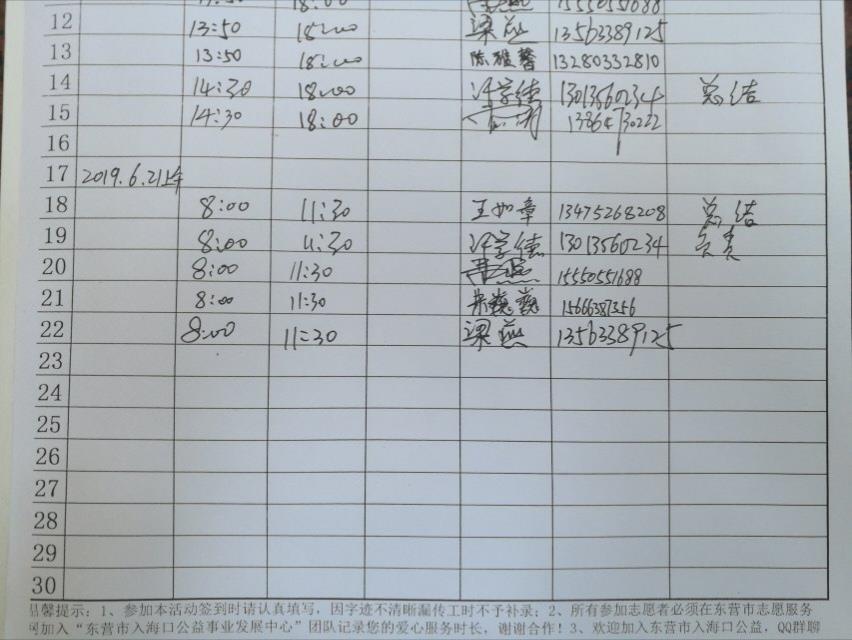 18:00 15550551688
12 13:50 18:00 梁燕 13563389125
13 13:50 18:00 陈雅馨 13280332810
14 14:30 18:00 许学德 13013560234 总结
15 14:30 18:00
16
17 2019.6.21上午
18 8:00 11:30 王如章 13475268208 总结
19 8:00 11:30 许学德 13013560234 负责
20 8:00 11:30 15550551688
21 8:00 11:30 15666387356
22 8:00 11:30 梁燕 13563389125
23
24
25
26
27
28
29
30
温馨提示：1、参加本活动签到时请认真填写，因字迹不清晰漏传工时不予补录；2、所有参加志愿者必须在东营市志愿服务
加入“东营市入海口公益事业发展中心”团队记录您的爱心服务时长，谢谢合作！3、欢迎加入东营市入海口公益，QQ群聊